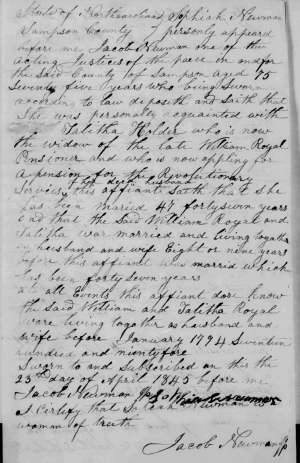 State of North Carolina Sophiah Newman
Sampson County personly appeard
before me Jacob Newman one of the
acting Justices of the peace in and for
the Said County of Sampson aged 75
Seventy five years who being Sworn
according to law deposeth and Saith that
She was personally acquainted with
Talitha Holder who is now
the widow of the late William Royal
Pensioner and who is now applying for
a pension for the Revolutionary
Servois of her decd husband
this affiant Saith that She
has been married 47 forty Seven years
and that the Said William Royal and
Talitha war married and living together
as husband and wife Eight or nine years
before this affiant was marrid which
has been forty Seven years
at all Events this affiant dose know
the Said William and Talitha Royal
ware living together as husband and
wife before 1 January 1794 Seventeen
hundred and ninety fore
Sworn to and Subscribed on this the
25th day of April 1845 before me
Jacob Newman Jp Sophiah Newman
I Certify that Sophiah Newman is a
woman of truth
Jacob Newman Jp